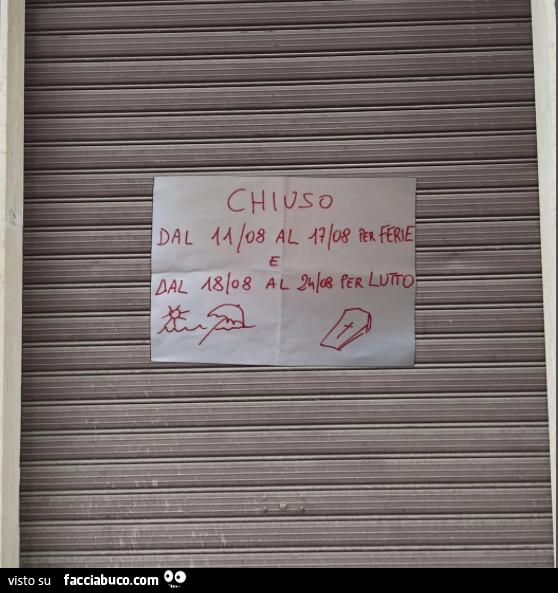 CHIUSO
DAL 11/08 AL 17/08 PER FERIE
E
DAL 18/08 AL 24/08 PER LUTTO
visto su facciabuco.com